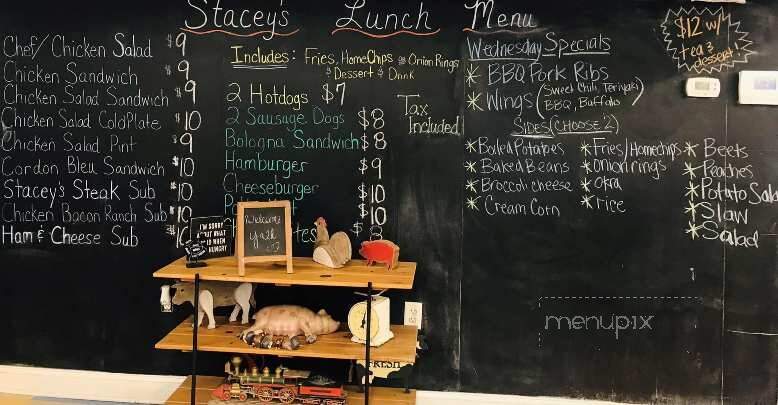 Stacey's Lunch Menu
Chef/Chicken Salad $9
Chicken Sandwich $9
Chicken Salad Sandwich $9
Chicken Salad ColdPlate $10
Chicken Salad Pint $9
Cordon Bleu Sandwich $10
Stacey's Steak Sub $10
Chicken Bacon Ranch Sub $10
Ham & Cheese Sub
Includes: Fries, HomeChips or Onion Rings
& Dessert & Drink
2 Hotdogs $7
2 Sausage Dogs $8
Bologna Sandwich $8
Hamburger $9
Cheeseburger $10
$10
Tax
Included
Wednesday Specials
BBQ Pork Ribs
Wings (Sweet Chili, Teriyaki
BBQ, Buffalo)
Sides (Choose 2)
Baked Potatoes
Baked Beans
Broccoli cheese
Cream Corn
Fries/Homechips
Onion rings
Okra
rice
Beets
Peaches
Potato Salad
Slaw
Salad
$12 w/
tea &
dessert!
I'M SORRY
HUNGRY
Welcome
Ya'll
FRESH
menupix